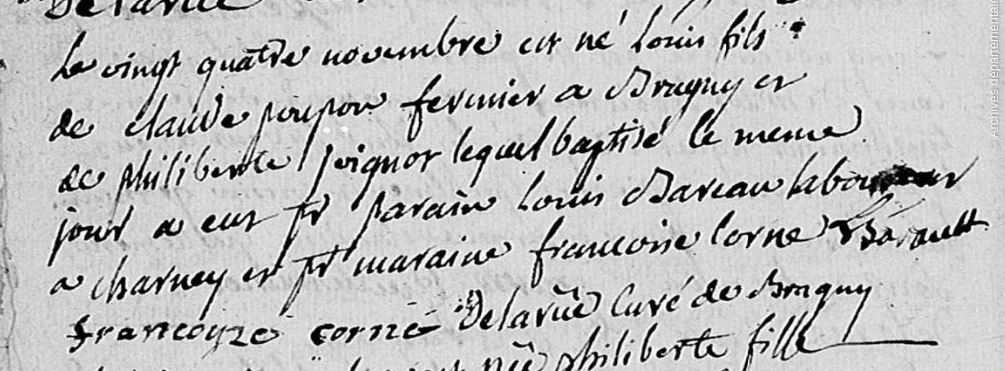 Delarue
le vingt quatre novembre est né louis fils
de claude poupon fermier a Bragny et
de philiberte poignor lequel baptisé le meme
jour a eut pr parain louis Bareau laboureur
a charney et pr maraine francoise corne LBarault
francoyze corne Delarüe Curé de Bragny
née philiberte fille
© Archives départementales